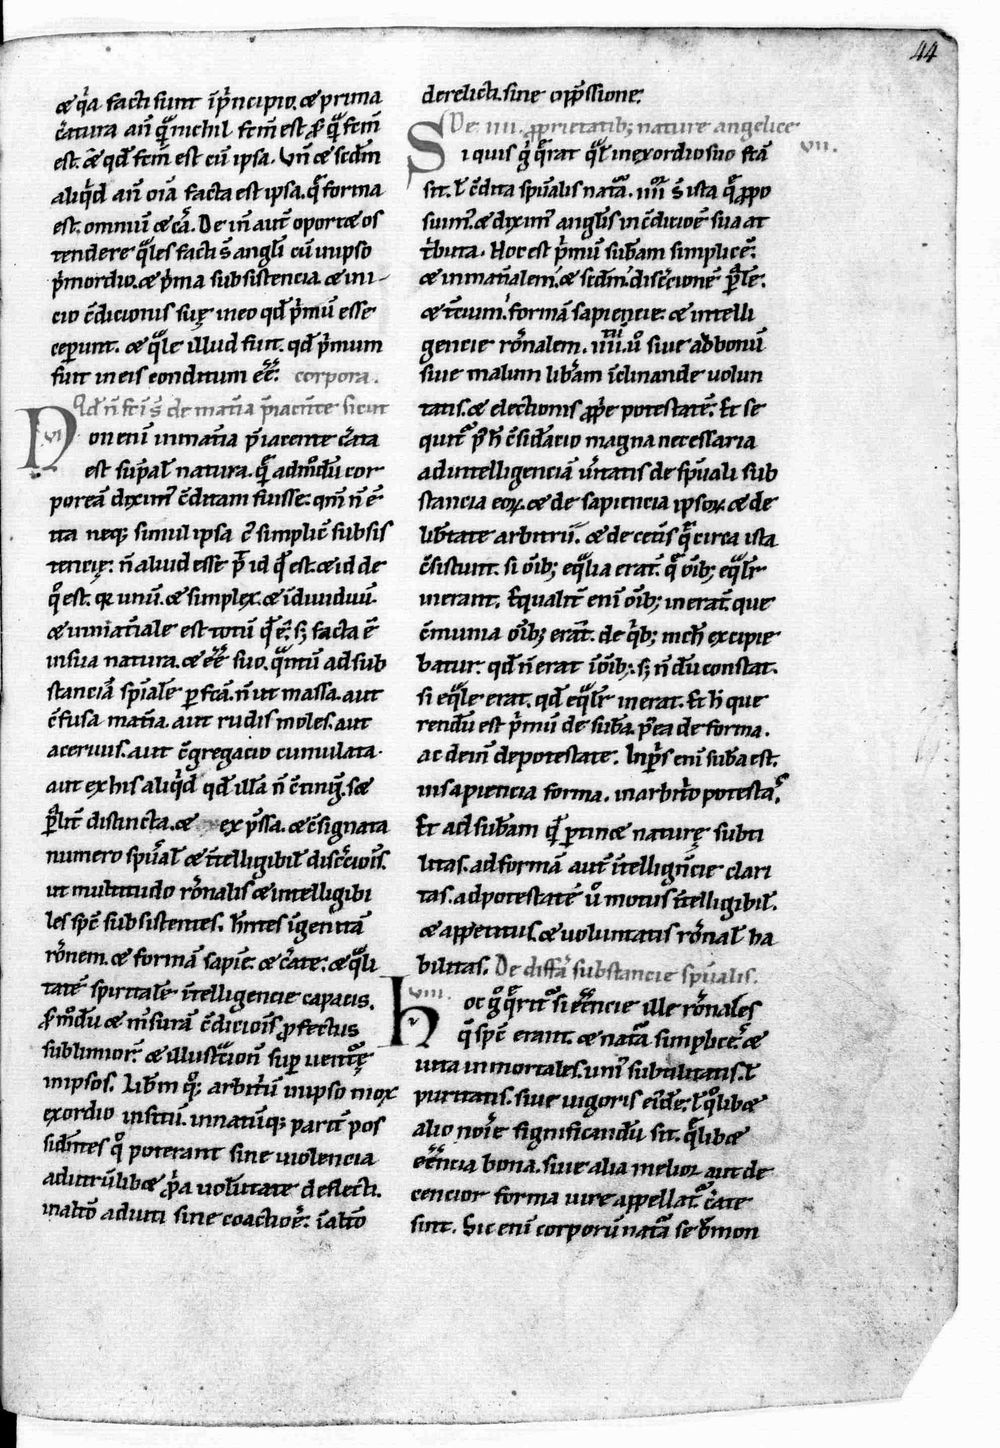 44
& q̇a facti sunt ip̄ncipio. & prima
c̄atura an̄ q̄ nichil fcm̄ est & q̄ fcm̄
est. & qd̄ fcm̄ est cū ipsa. Vn̄ & scdm̄
aliq̇d an̄ oīa facta est ipsa. q̄ forma
est. omniū & cā. De in̄ aut̄ oport& os
tendere q̄les facti s̄ angli cū inipso
p̄mordio. & p̄ma subsistencia & ini-
cio c̄dicionis suę ineo qd̄ p̄mū esse
ceperunt. & q̄le illud fuit. qd̄ p̄mum
fuit in eis conditum ēē. corpora.
Qd n̄ fc̄i s̄ de mat̄ia p̄iacn̄te sicut
vi
Non eni inmat̄ia p̄iacente c̄ata
est sup̄nal̄ natura. q̄ admōdū cor
poreā diximꝰ c̄ditam fuisse: qm̄ n̄ ē
ita neq; simul ipsa ē simplic̄ subsis
tencię: n̄ aliud esse p̄ id qd̄ est. & id de
q̊ est. qr unū. & simplex. & īdiuiduū.
& inmat̄iale est totū qd̄ ē. s; facta ē
insua natura. & ēē suo. q̄ntū ad sub
stanciā sp̄iale p̄fcā. n̄ ut massa. aut
c̄fusa mat̄ia. aut rudis moles. aut
aceruus. aut c̄gregacio cumulata.
aut ex his aliq̇d qd̄ illa n̄ c̄ting̅. s&
p̄lit̄ distincta. & ex p̄ssa. & c̄signata
numero spūal̄ & īntelligibil̄ discr̄ciois̄.
ut multitudo rōnalis & intelligibi
les spē subsistentes. hn̄tes īgenitā
rōnem. & formā sapiē. & c̄ate: & q̄li
tatē spiritale īntelligencie capacis.
& mōdū & m̄surā c̄dicioīs p̄fectus
sublimior̄. & illustc̄ion̄ sup uentọ̄ę
inipsos. Libm̄ q̊; arbitriū inipso mox
exordio institū. innatūq; parit̄ pos
sidentes q̊ poterant sine uiolencia
adutrūlib& p̄a uolūtate deflecti.
inaltō adiuti sine coactiōē: īaltō
derelicti. sine opp̄ssione.
De. iiii. p̄prietatib; nature angelice
vii.
Si quis ḡ q̄rat q̄l̄ inexordio suo fcā
sit. l̄ c̄dita spūalis natā. iiii s̄ ista q̄ p̄po
suimꝰ. & diximꝰ anglīs in c̄dicioē sua at
t̄buta. Hoc est p̄mū subam simplicē:
& inmat̄ialem. & scdm̄. discr̄cionē p̄lē.
& tc̄ium. formā sapiencie: & intelli
gencie rōnalem. iiii. ů siue ad bonū
siue malum lib̄am īclinande uolun
tatis. & electionis p̄p̄e potestatē. Et se
quit̄ p̄ h̄ c̄sidācio magna necessaria
adintelligenciā ūitatis de spūali sub
stancia eoꝝ. & de sapiencia ipsoꝝ. & de
lib̄tate arbitrii. & de cet̄is q̄ circa ista
c̄sistunt. si oīb; eq̄lia erat̄. q̄ oīb; eq̄lr̄
inerant. Equalit̄ eni oīb; inerat̄. que
c̄munia oīb; erāt. de q̇b; nich̄ excipie
batur. qd̄ n̄ erat ioīb;. s; n̄ dū constat.
si eq̄le erat. qd̄ eq̄lr̄ inerat. Et h̄ que
rendū est p̄mū de subā. p̄ea de forma.
ac dein̄ de potestate. Inp̄s eni suba est.
in sapiencia forma. in arbit̄o potestaˢ.
Et ad subam qd̄ ptin& naturę subti
litas. ad formā aut̄ īntellign̄cie clari
tas. ad potestatē ů motus īntelligibil̄.
& appetitus. & uoluntatis rōnal̄ ha
bilitas. De diffā substancie spūalis.
viii.
hoc q̊ q̄rit̄ si ēēncie ille rōnales
q̄ spē erant. & natā simplicē. &
uita inmortales. uniꝰ subtilitatis. l̄
puritatis. siue uigoris eīde: l̄ q̊lib&
alio noīe significandū sit. q̄lib&
ēēncia bona. siue alia melior aut de
cencior forma uire appellat̄ c̄ate
sint. Sic eni corporū natā se dem̄on